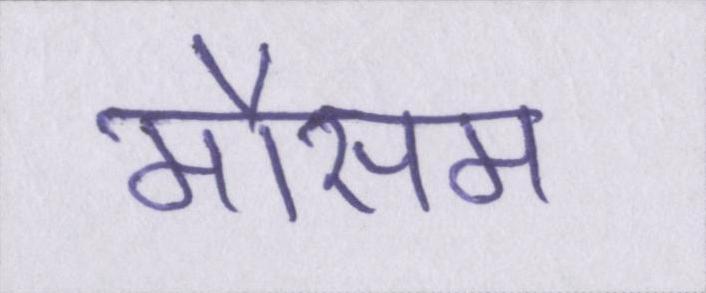 मौसम